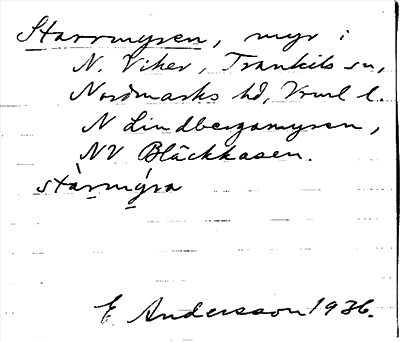 Starrmyren, myr i
N. Viker, Trankils sn,
Nordmarks hd, Vrml l.
N Lindbergsmyren,
NV Bläckkasen.
stàrmýra
E. Andersson 1936.